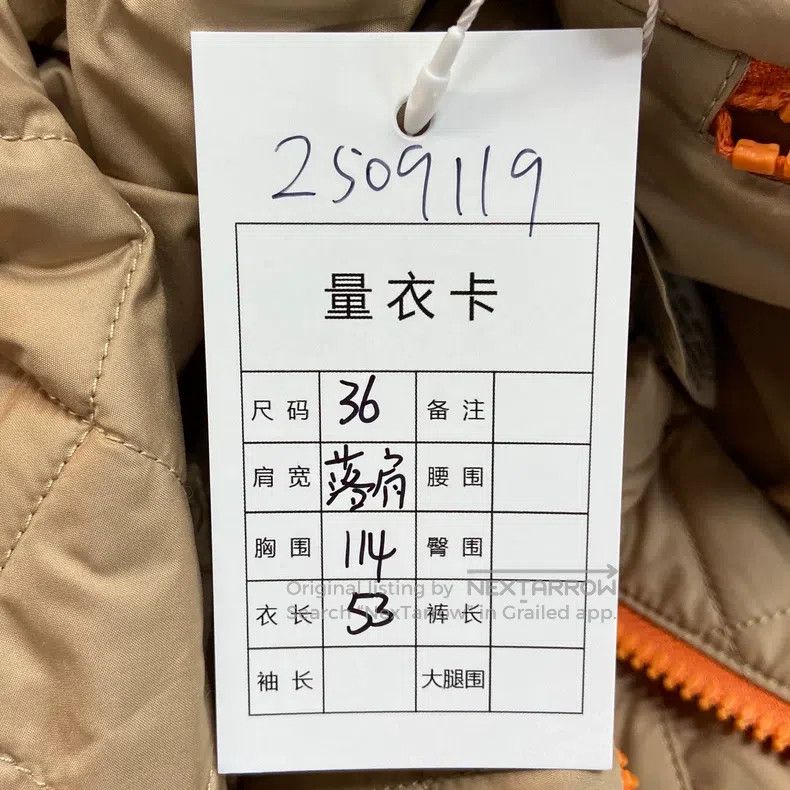 2509119
量衣卡
尺码 36 备注
肩宽 落肩 腰围
胸围 114 臀围
Original listing by NEXTARROW
衣长 53 裤长
Search "NexTarrow" in Grailed app.
袖长 大腿围